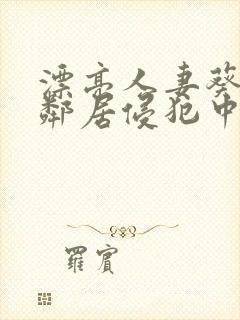 漂亮人妻葵
鄰居侵犯中
羅賓